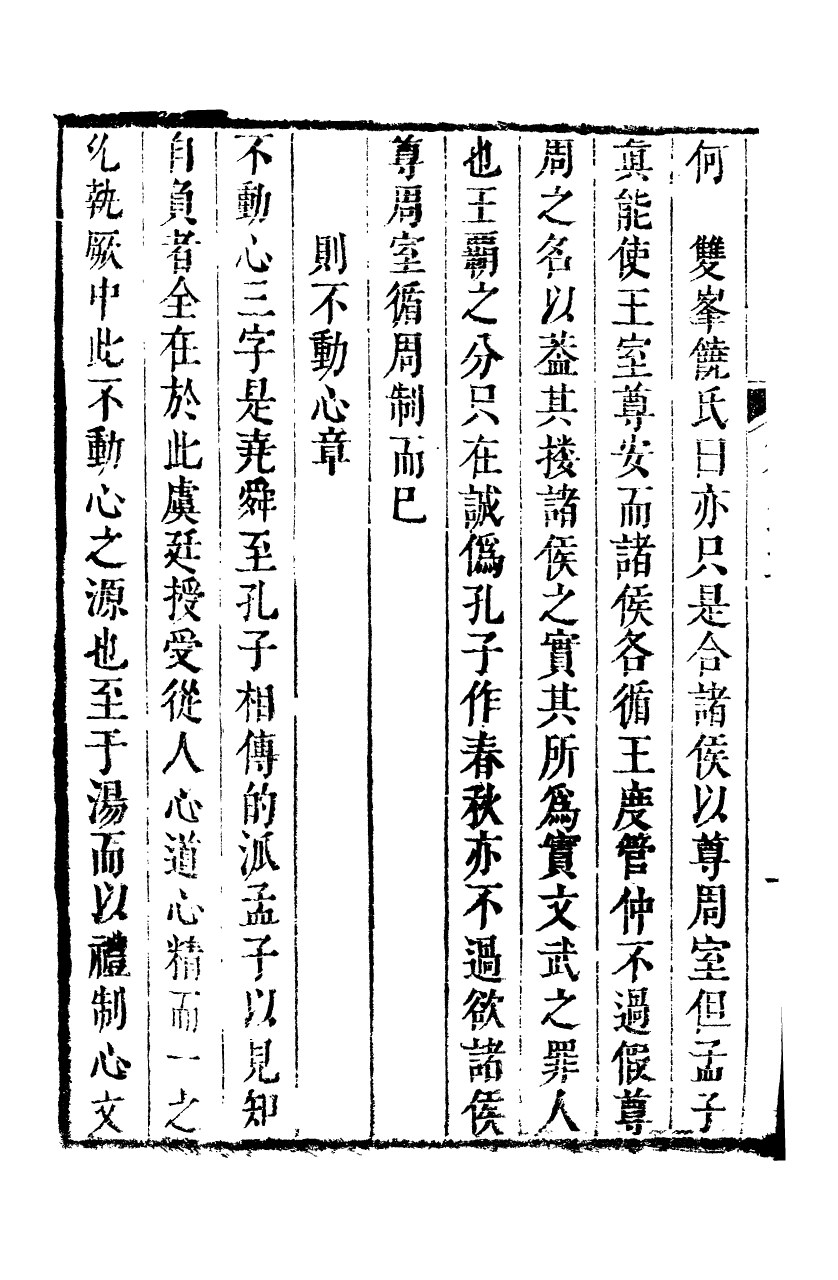 何　雙峯饒氏曰亦只是合諸侯以尊周室但孟子
眞能使王室尊安而諸侯各循王度管仲不過假尊
周之名以葢其摟諸侯之實其所爲實文武之罪人
也王霸之分只在誠僞孔子作春秋亦不過欲諸侯
尊周室循周制而已
則不動心章
不動心三字是堯舜至孔子相傳的派孟子以見知
自負者全在於此虞廷授受從人心道心精而一之
允執厥中此不動心之源也至于湯而以禮制心文